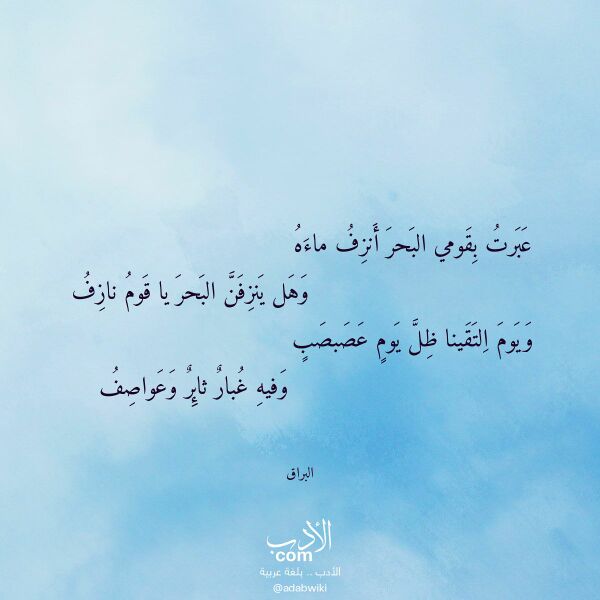 عَبَرتُ بِقَومي البَحرَ أَنزِفُ ماءَهُ
وَهَل يَنزِفَنَّ البَحرَ يا قَومُ نازِفُ
وَيَومَ اِلتَقَينا ظِلَّ يَومٍ عَصَبصَبٍ
وَفيهِ غُبارٌ ثائِرٌ وَعَواصِفُ
البراق
الأدب
com
الأدب .. بلغة عربية
@adabwiki